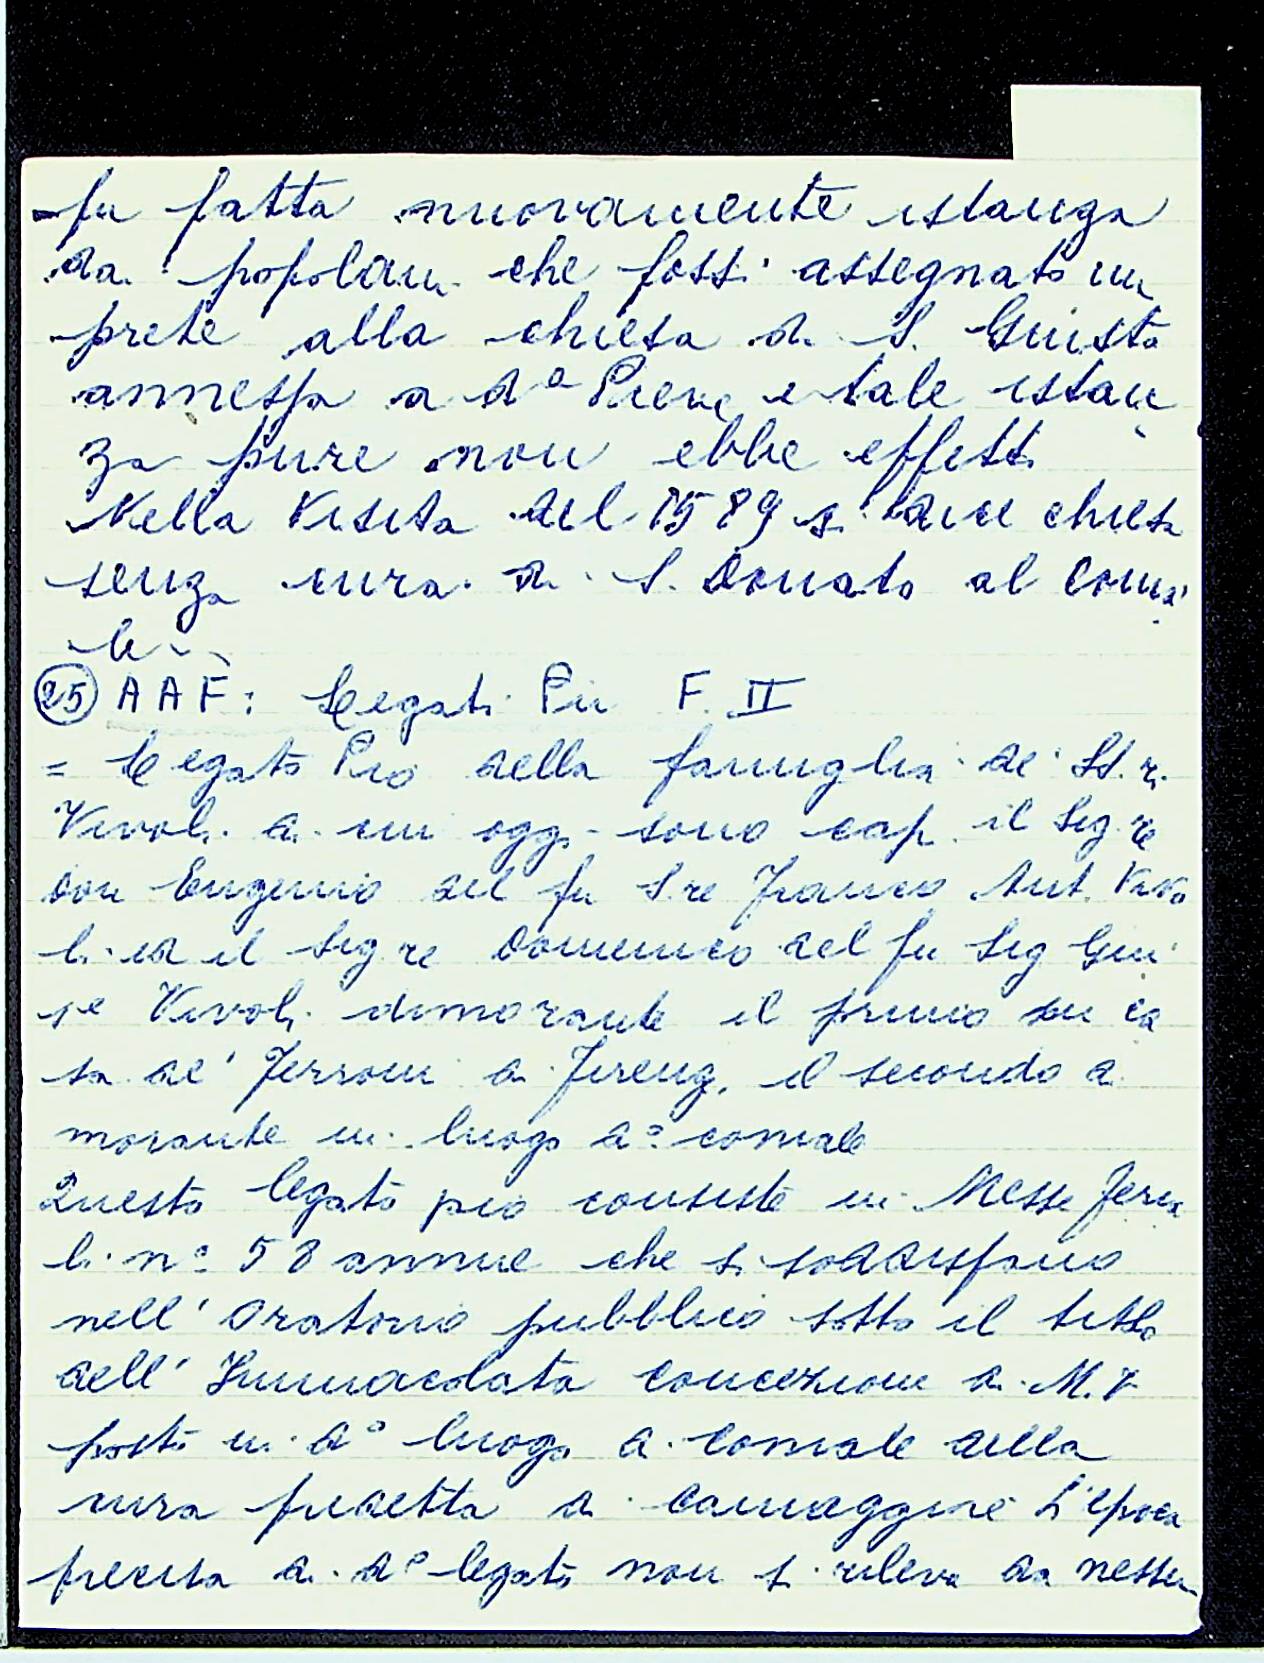 fu fatta nuovamente istanza
da popolani che fossi assegnato un
prete alla chiesa di S. Giusto
annessa a d.ª Pieve e tale istan
za pure non ebbe effetti
Nella Visita del 1589 si dice chiesa
senza cura di S. Donato al Comia
le
25 AAF: Legati Pii F. II
= Legato Pio della famiglia de' SS.ri
Vivoli di cui oggi sono capi il Sig.re
Don Eugenio del fu S.re Franco Ant. Vivo
li ed il Sig re Domenico del fu Sig Giu
se Vivoli dimorante il primo in ca
sa de' Ferroni a Firenz, il secondo di
morante in luogo d.º comiale
Questo legato pio consiste in Messe feria
li nº 58 annue che si soddisfano
nell' Oratorio pubblico sotto il titolo
dell' Immacolata Concezione di M. V
posto in dº luogo di Comiale della
cura predetta di Camaggiore L'epoca
precisa di dº legato non si rileva da nessu